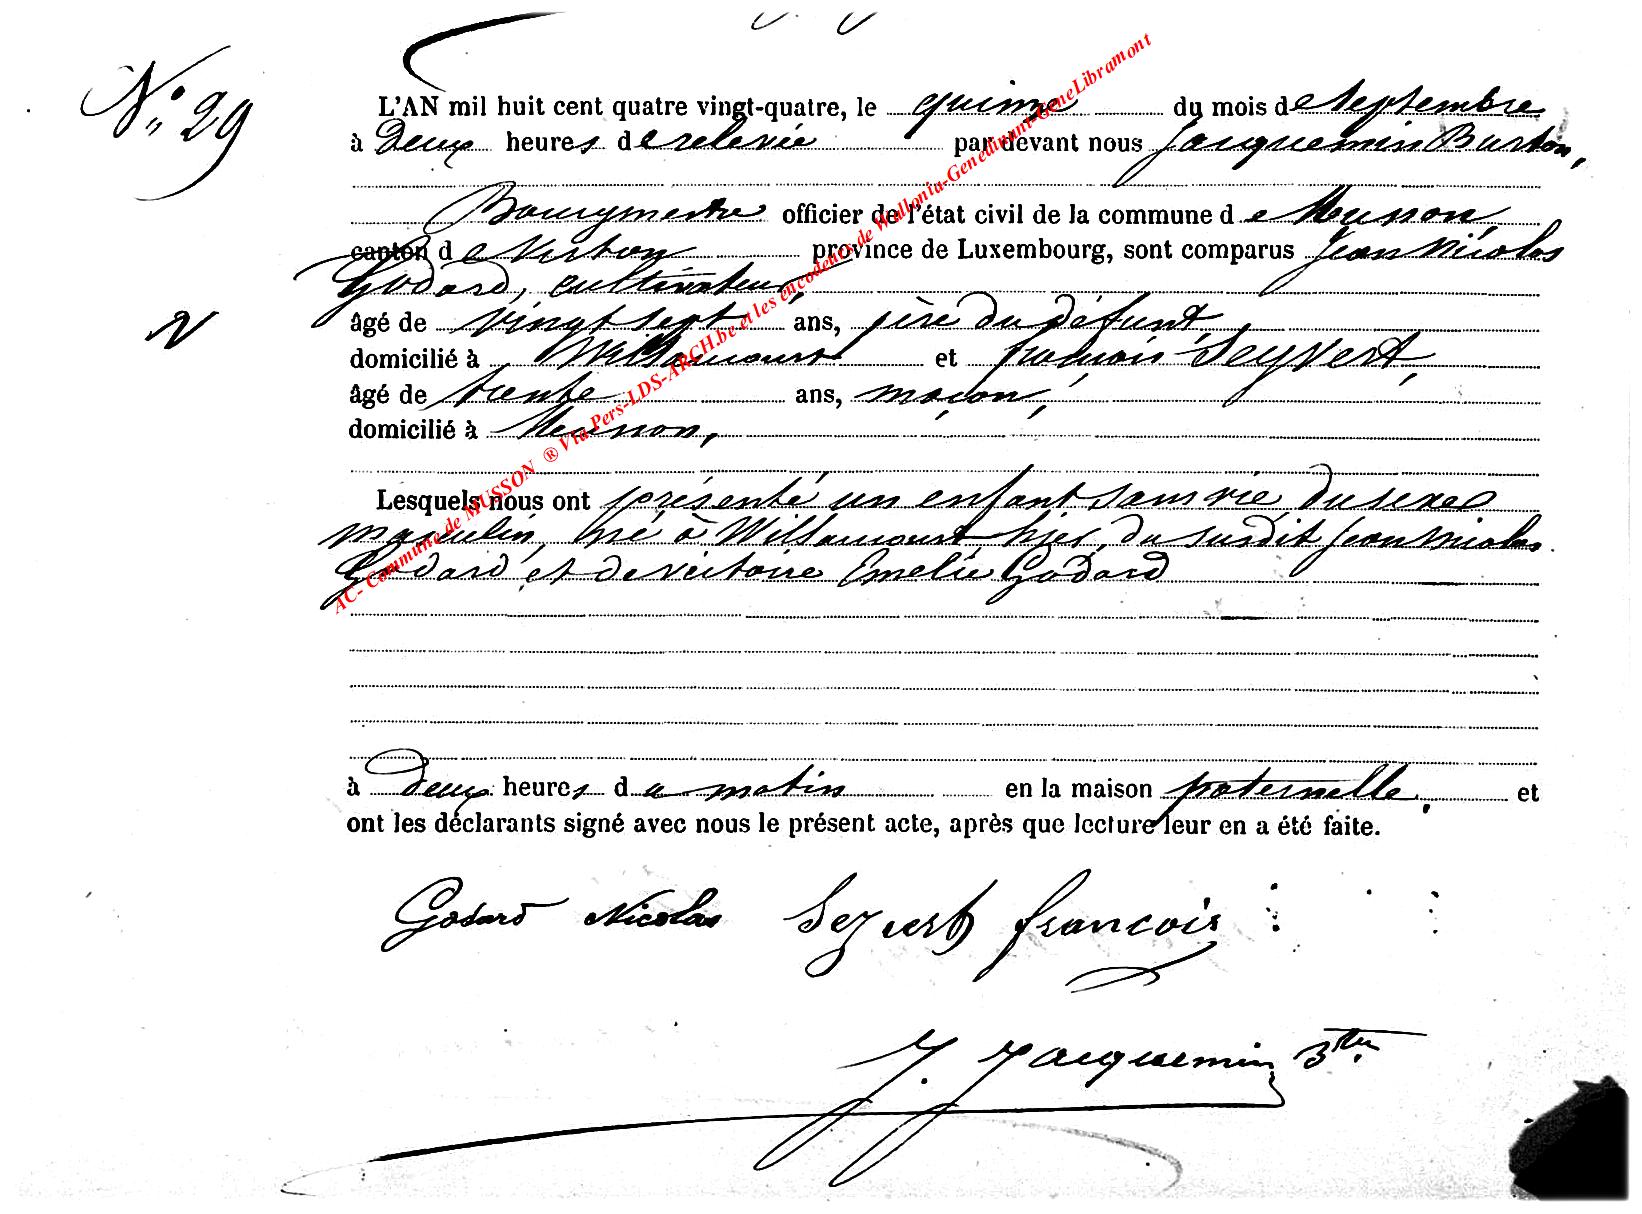 N° 29
L'AN mil huit cent quatre vingt-quatre, le quinze du mois de Septembre
à Deux heures de relevée par devant nous Jacquemin Burton,
Bourgmestre officier de l'état civil de la commune de Musson
canton de Virton province de Luxembourg, sont comparus Jean Nicolas
Godard, cultivateur,
âgé de vingt sept ans, père du défunt,
domicilié à Willancourt et françois Seyvert,
âgé de trente ans, maçon,
domicilié à Musson,
Lesquels nous ont présenté un enfant sans vie, du sexe
masculin, né à Willancourt hier, du susdit Jean Nicolas
Godard, et de Victoire Emélie Godard
à deux heures du matin en la maison paternelle, et
ont les déclarants signé avec nous le présent acte, après que lecture leur en a été faite.
Godard Nicolas Seyvert françois
J. Jacquemin Bton
AC- Commune de MUSSON ® Via Pers-LDS-ARCH.be et les encodeurs de Wallonia-Genedinant-GeneLibramont